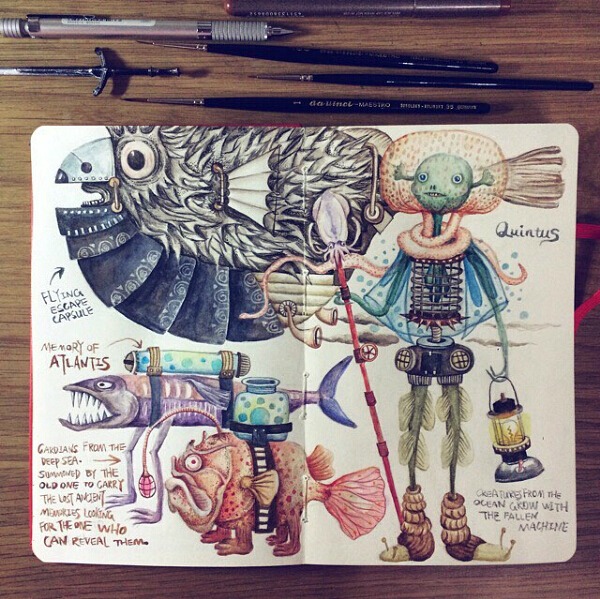 da vinci - MAESTRO
35
Quintus
FLYING
ESCAPE
CAPSULE
MEMORY OF
ATLANTIS
GARDIANS FROM THE
DEEP SEA.
SUMMONED BY THE
OLD ONE TO CARRY
THE LOST ANCIENT
MEMORIES LOOKING
FOR THE ONE WHO
CAN REVEAL THEM.
CREATURES FROM THE
OCEAN GROW WITH
THE FALLEN
MACHINE